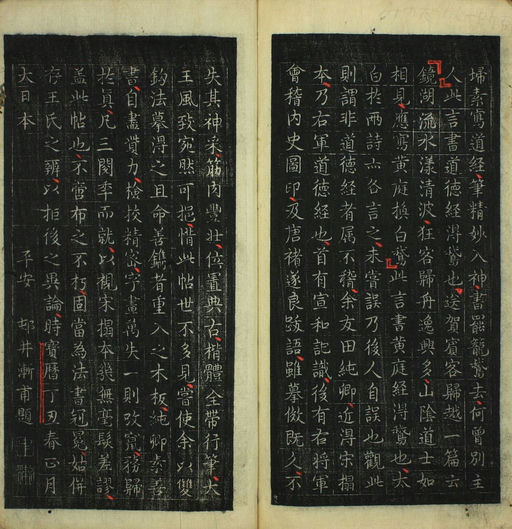 埽素寫道經筆精妙入神書罷籠鵞去何曾別主
人此言書道德經淂鵞也送賀賓客歸越一篇云
鏡湖流水漾清波狂客歸舟逸興多山陰道士如
相見應寫黃庭換白鵞此言書黃庭經淂鵞也太
白於兩詩亦各言之未嘗誤乃後人自誤也觀此
則謂非道德經者属不稽余友田純卿近淂宋搨
本乃右軍道德經也首有宣和記識後有右將軍
會稽內史圖印及唐褚遂良跋語雖摹倣既久不
失其神采筋肉豐壯位置典右楷體全帶行筆大
王風致宛然可挹惜此帖世不多見嘗使余以雙
鈎法摹淂之且命善鐫者重入之木板純卿素善
書自盡賛力捡挍精密字畫萬失一則改竄務歸
於真凡三閱年而就以覩宋搨本幾無毫髮差謬
盖此帖也不啻布之不朽固當為法書冠冕姑併
存王氏之辯以拒後之異論時寶曆丁丑春正月
大日本 平安 邨井漸甫題